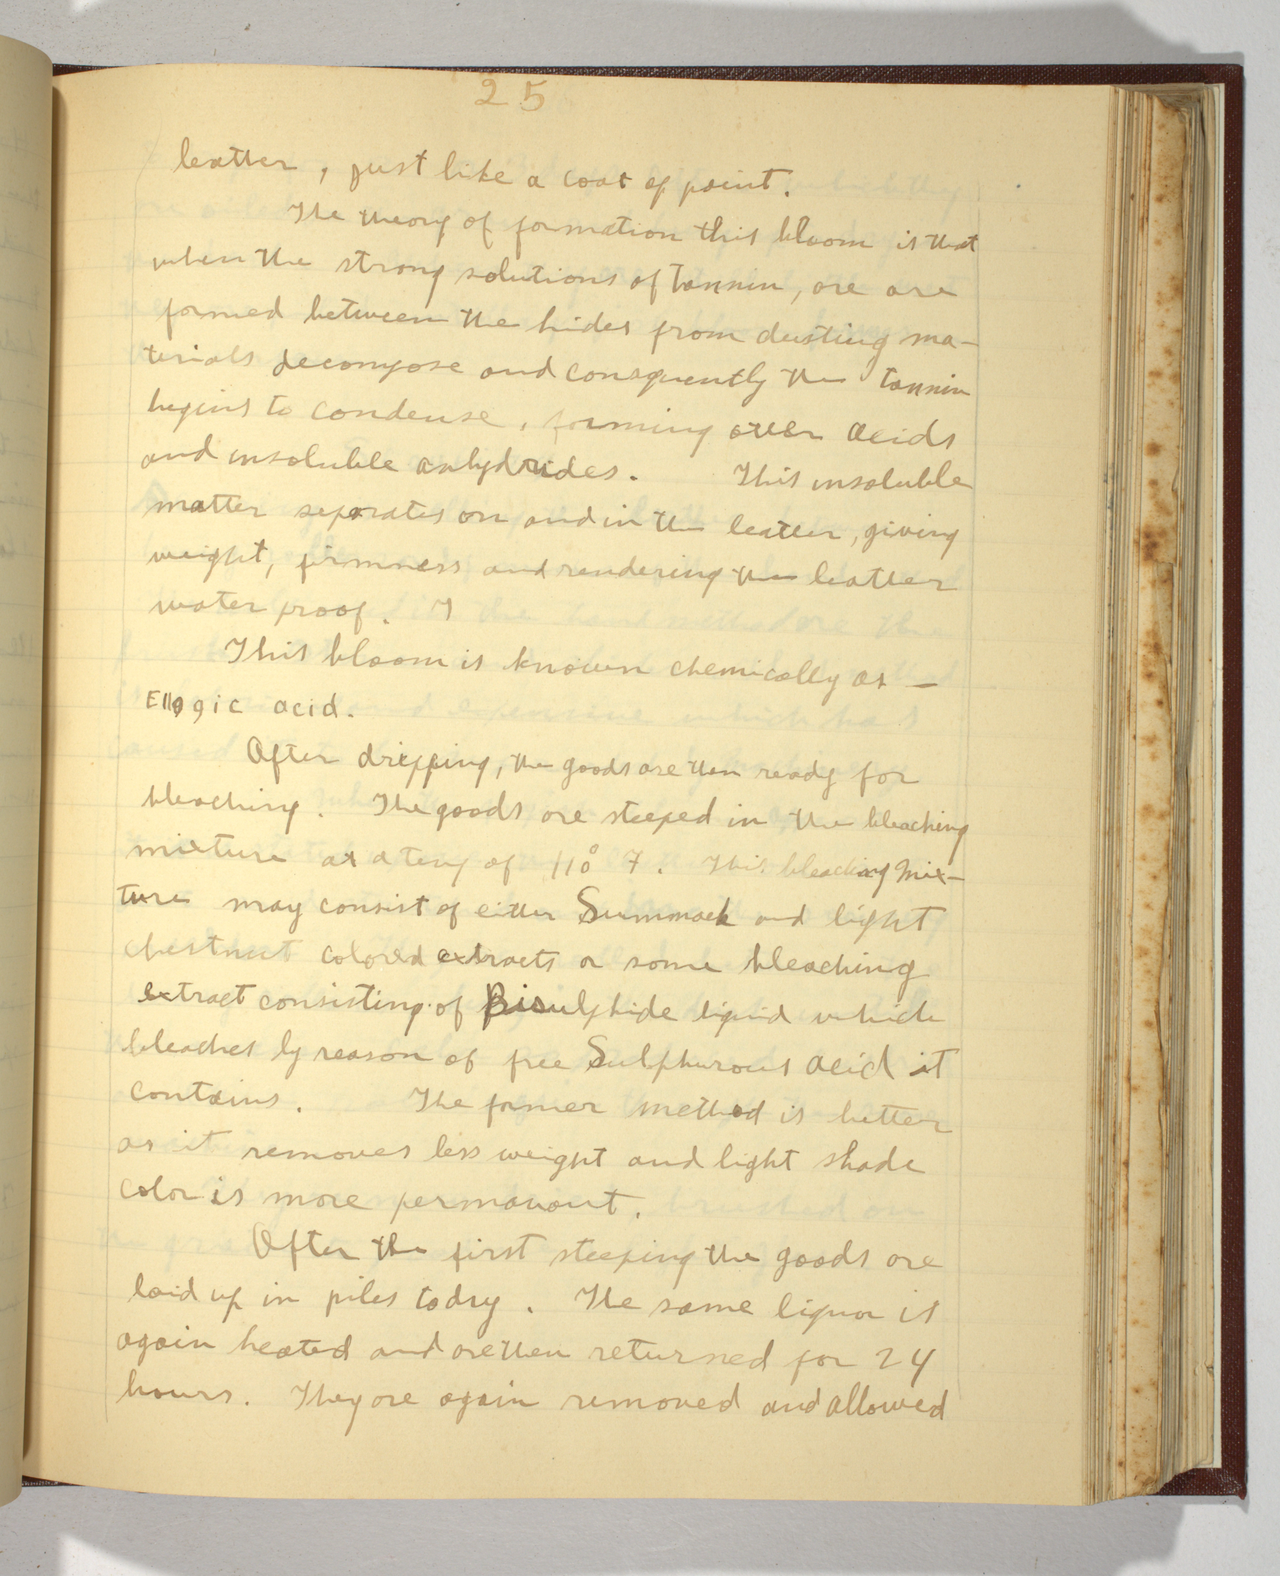 25
leather, just like a coat of paint.
The theory of formation this bloom is that
when the strong solutions of tannin, are are
formed between the hides from dusting ma-
terials decompose and consequently the tannin
begins to condense, forming other acids
and insoluble anhydrides. This insoluble
matter separates on and in the leather, giving
weight, firmness and rendering the leather
water proof. T
This bloom is known chemically as —
Ellagic acid.
After dripping, the goods are then ready for
bleaching. The goods are steeped in the bleaching
mixture at a temp of 110° F. This bleaching mix-
ture may consist of either Summack and light
chestnut colored extracts or some bleaching
extract consisting of Bisulphide liquid which
bleaches by reason of free Sulphurous acid it
contains. The former method is better
as it removes less weight and light shade
color is more permanant.
After the first steeping the goods are
laid up in piles to dry. The same liquor is
again heated and are then returned for 24
hours. They are again removed and allowed